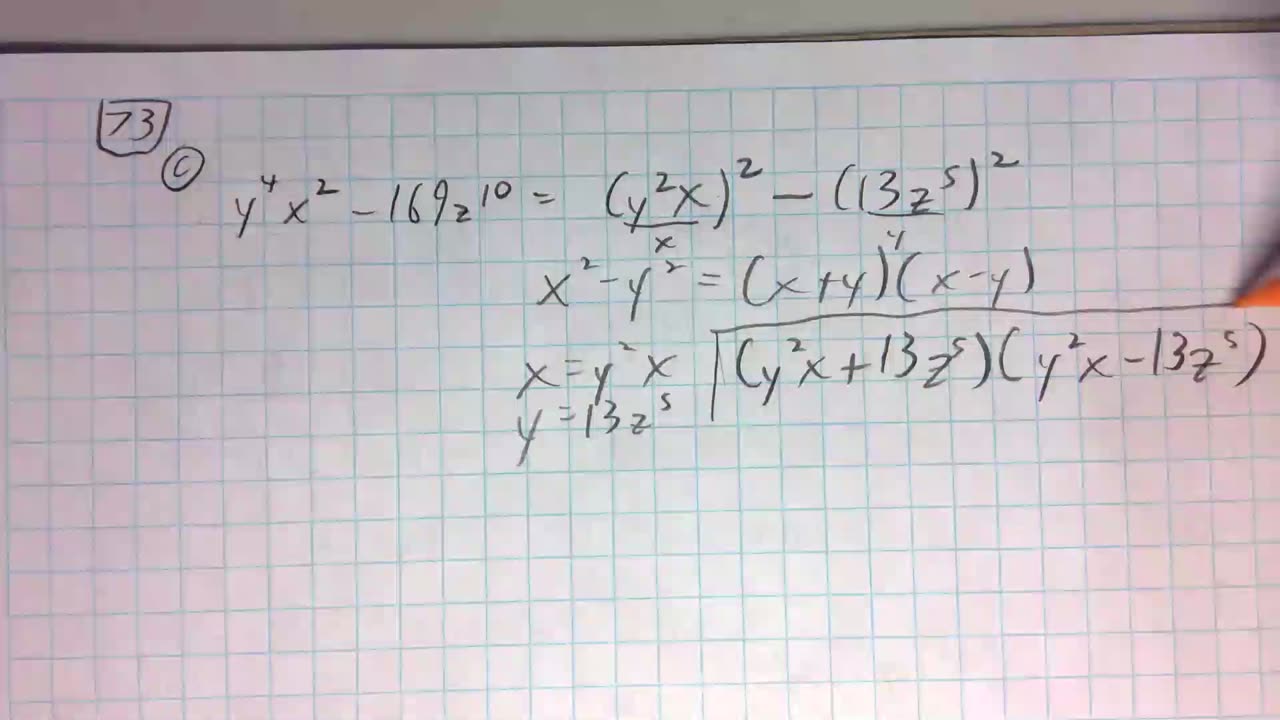 73
c
y⁴x² - 169z¹⁰ = (y²x)² - (13z⁵)²
x y
x² - y² = (x+y)(x-y)
x = y²x (y²x + 13z⁵)(y²x - 13z⁵)
y = 13z⁵